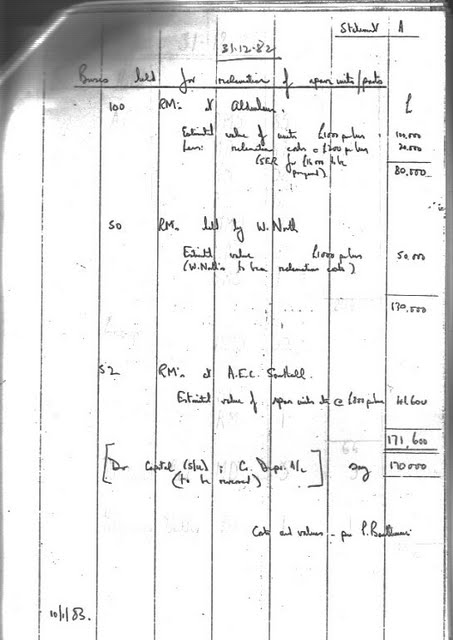 Statement A
31.12.82
Buses held for reclamation of spare units/parts
£
100 RM's at Aldenham.
Estimated value of units £1000 per bus 100,000
Less: reclamation costs @ £200 per bus 20,000
(SER for £16,000 to be prepared) 80,000
50 RM's held by W. North
Estimated value £1000 per bus 50,000
(W. North's to bear reclamation costs)
130,000
52 RM's at A.E.C. Southall.
Estimated value of spare units etc @ £800 per bus 41,600
171,600
[Dr Capital (S/U) ; Cr Depn. A/c] say 170000
(to be reversed)
Costs and values - per P.
10/1/83.